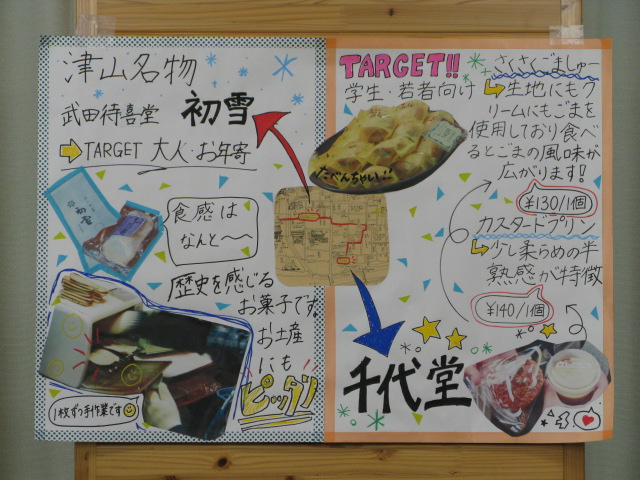 津山名物
武田待喜堂 初雪
TARGET 大人・お年寄
食感は
なんと〜〜
歴史を感じる
お菓子です。
お土産
にも
ピッタリ
1枚ずつ手作業です
TARGET!!
学生・若者向け
たべんちゃい!!
さくさくごましゅー
生地にもク
リームにもごまを
使用しており食べ
るとごまの風味が
広がります!
¥130/1個
カスタードプリン
少し柔らめの半
熟感が特徴
¥140/1個
千代堂